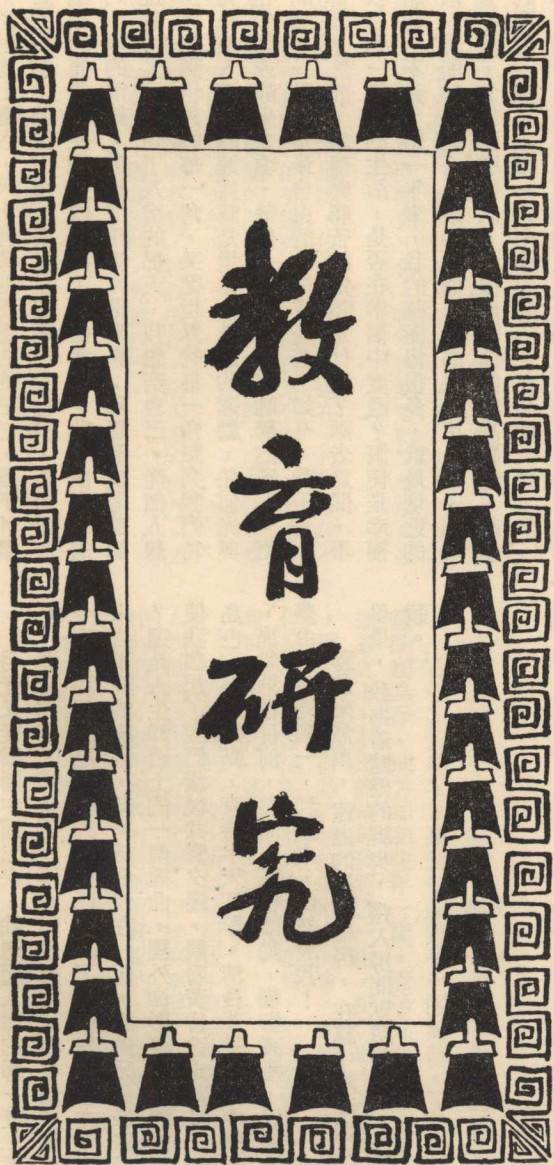 教育研究